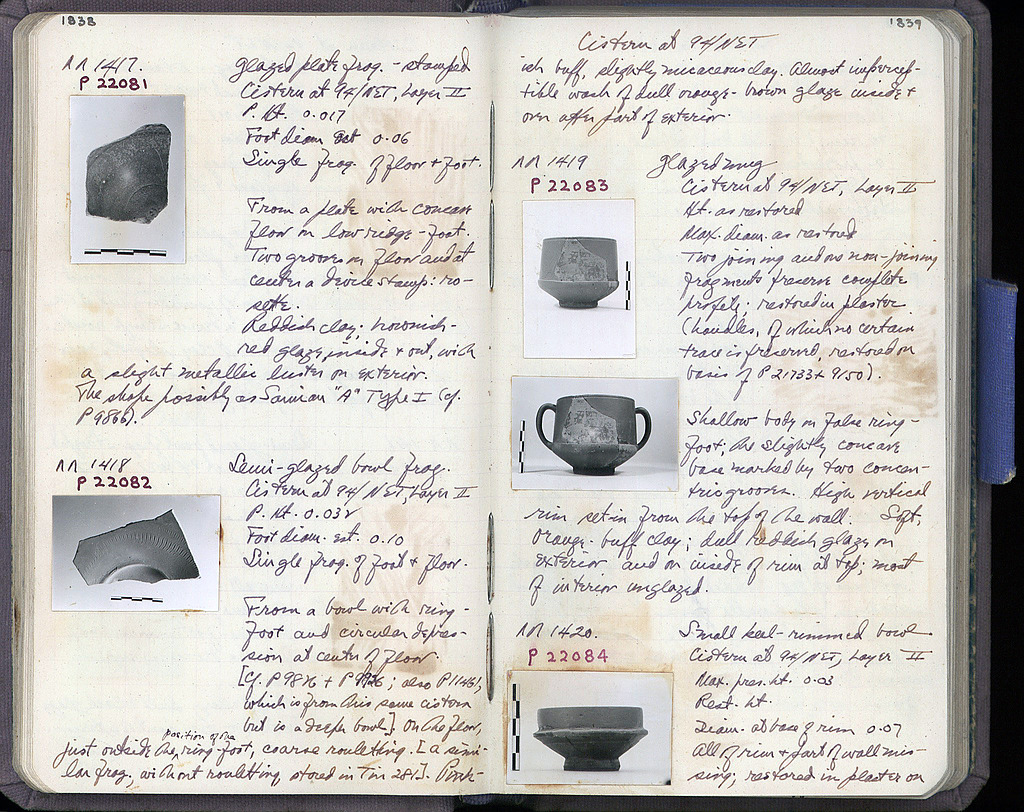 1838
ΛΛ 1417.
P 22081
glazed plate frag. - stamped
Cistern at 94/NET, Layer II
P. Ht. 0.017
Foot diam est 0.06
Single frag. of floor + foot.
From a plate with concave
floor on low ridge-foot.
Two grooves on floor and at
center a device stamp: ro-
sette.
Reddish clay; brownish-
red glaze, inside + out, with
a slight metallic luster on exterior.
The shape possibly as Samian "A" Type I (cf.
P 9866).
ΛΛ 1418
P 22082
Semi-glazed bowl frag.
Cistern at 94/NET, Layer II
P. Ht. 0.032
Foot diam. est. 0.10
Single frag. of foot + floor.
From a bowl with ring-
foot and circular depres-
sion at center of floor
[Cf. P 9876 + ; also P 11461,
which is from this same cistern
but is a deeper bowl.] On the floor,
just outside the position of the ring-foot, coarse rouletting. [A simi-
lar frag. without rouletting, stored in Tin 281]. Pink-
1839
Cistern at 94/NET
ish buff, slightly micaceous clay. Almost impercep-
tible wash of dull orange-brown glaze inside +
over upper part of exterior.
ΛΛ 1419
P 22083
glazed mug
Cistern at 94/NET, Layer II
Ht. as restored
Max. diam. as restored
Two joining and one non-joining
fragments preserve complete
profile; restored in plaster
(handles, of which no certain
trace is preserved, restored on
basis of P 21733 + 9150).
Shallow body on false ring-
foot; the slightly concave
base marked by two concen-
tric grooves. High vertical
rim set in from the top of the wall. Soft,
orange-buff clay; dull reddish glaze on
exterior and on inside of rim at top; most
of interior unglazed.
ΛΛ 1420.
P 22084
Small keel-rimmed bowl
Cistern at 94/NET, Layer II
Max. pres. ht. 0.03
Rest. ht.
Diam. at base of rim 0.07
All of rim + part of wall mis-
sing; restored in plaster on